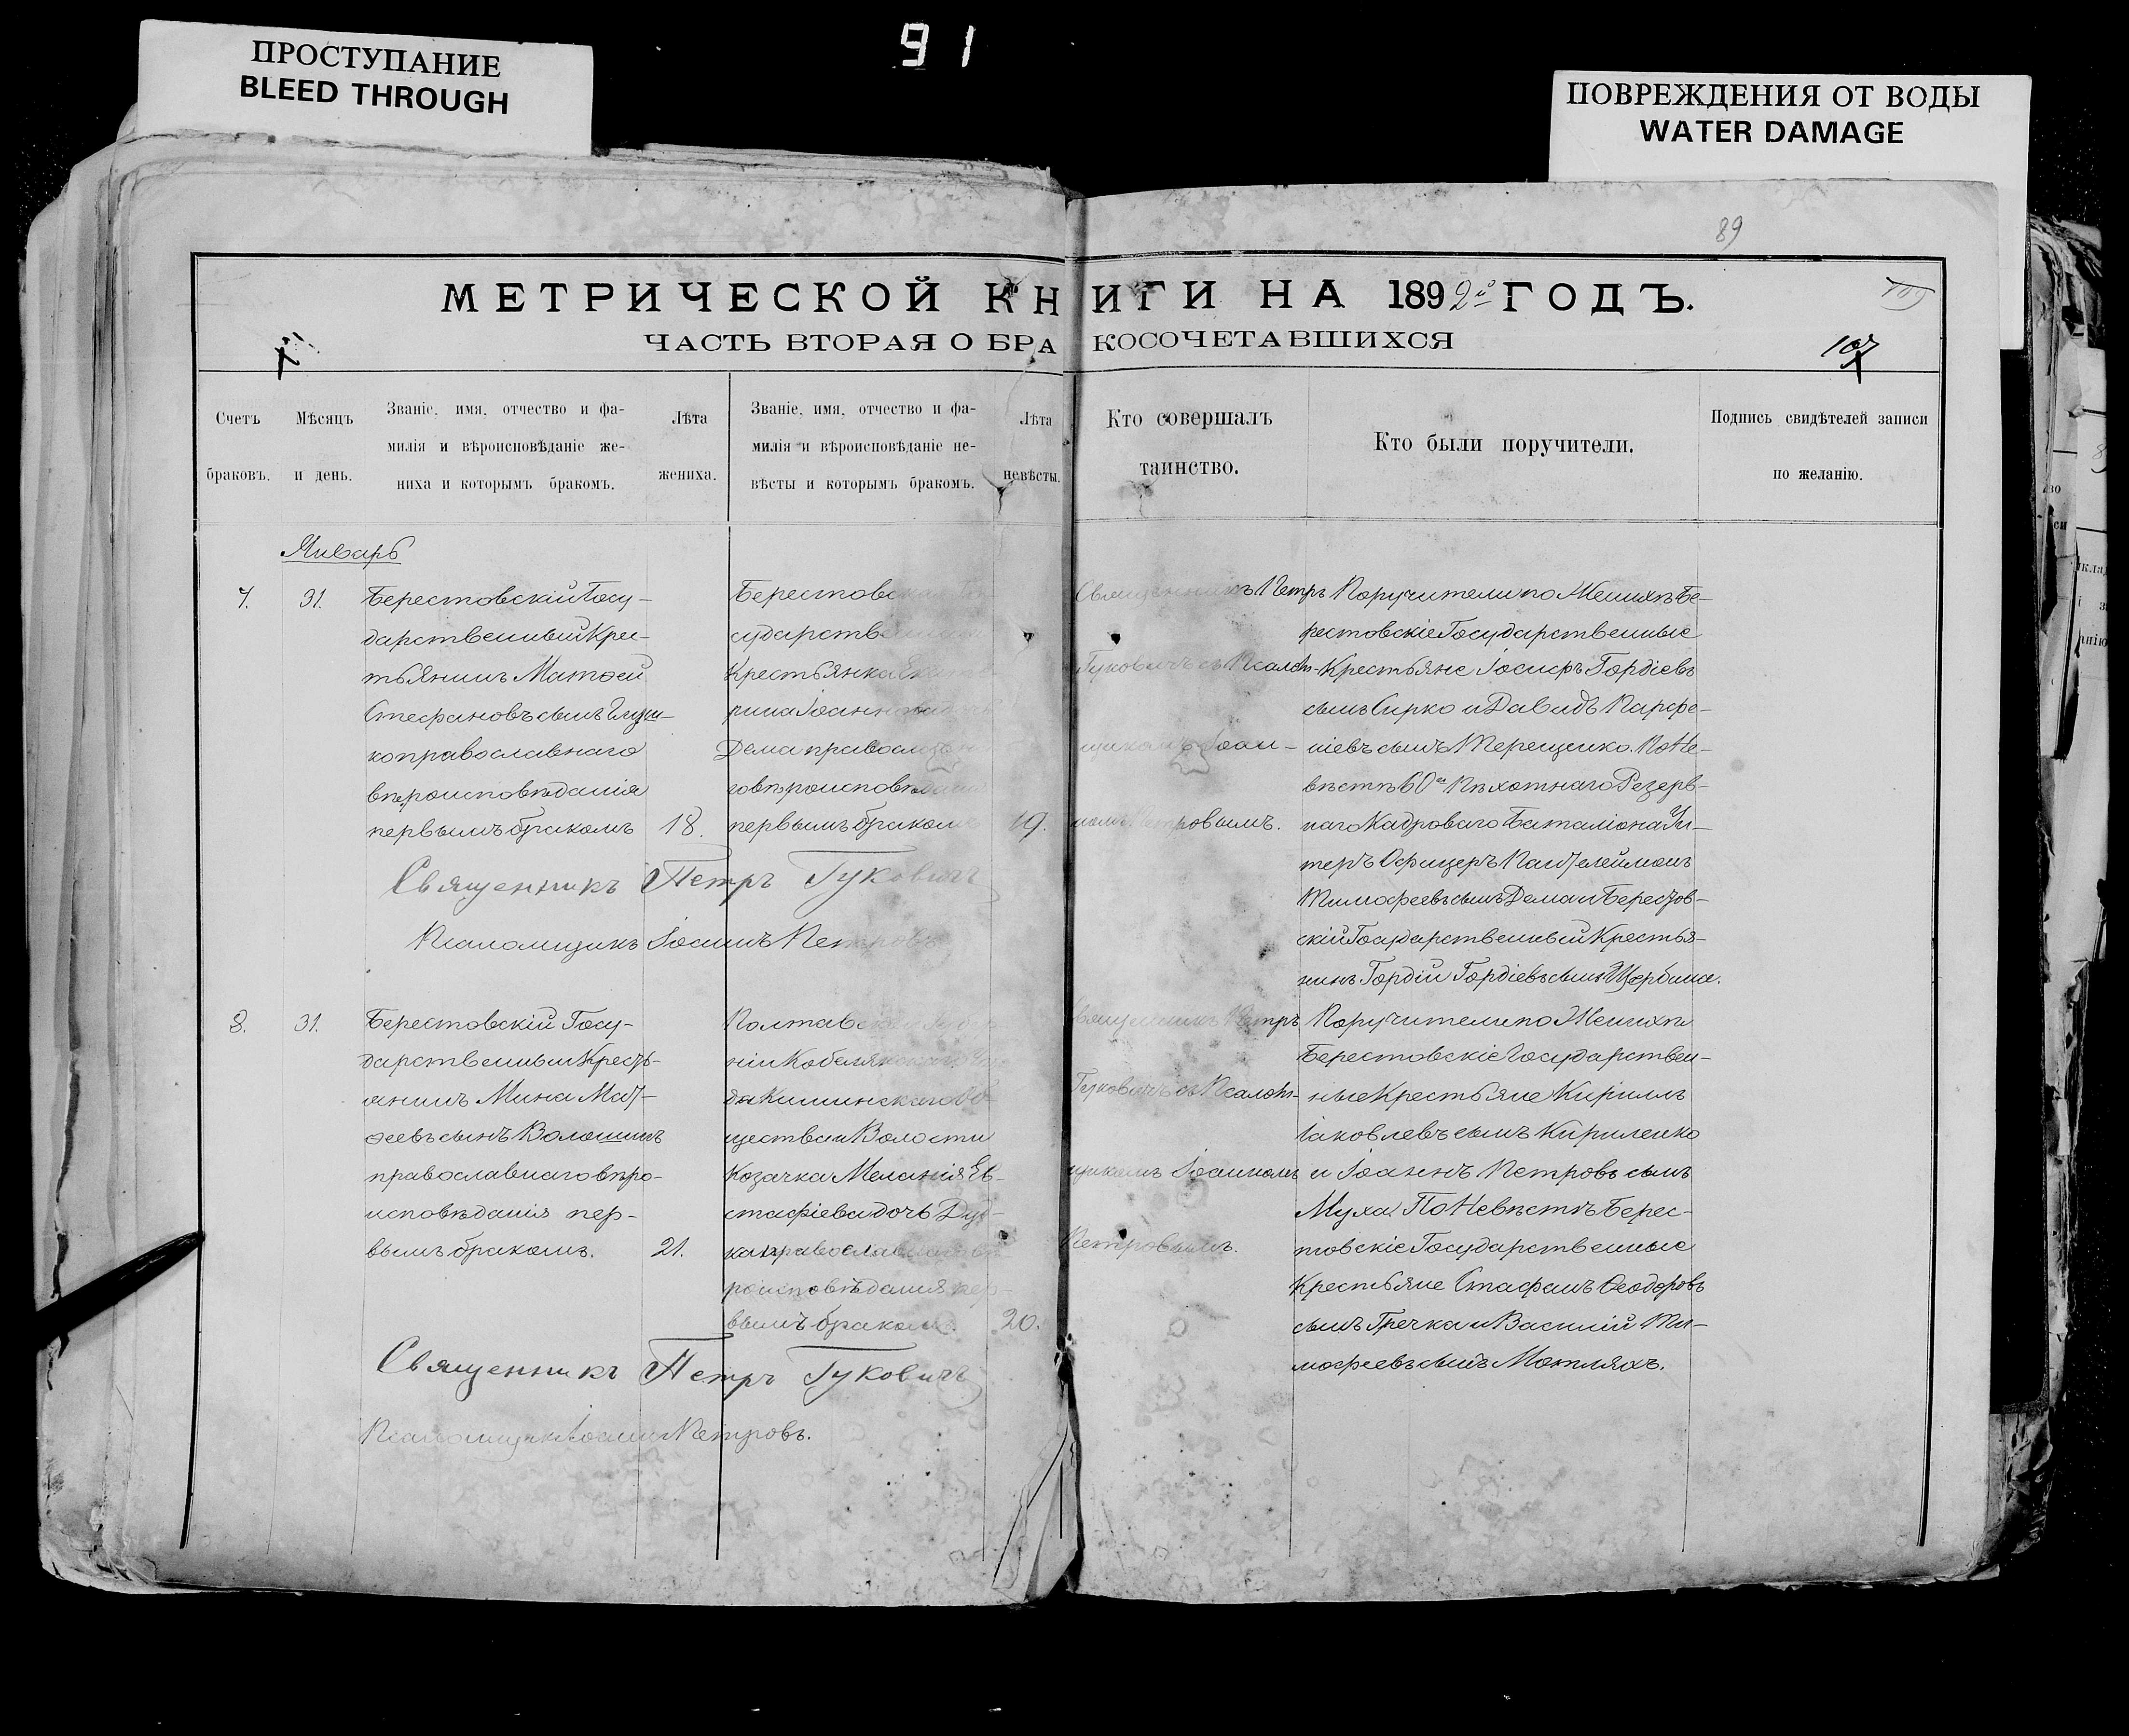 ПРОСТУПАНИЕ
BLEED THROUGH
91
ПОВРЕЖДЕНИЯ ОТ ВОДЫ
WATER DAMAGE
89
МЕТРИЧЕСКОЙ КНИГИ НА 1892й ГОДЪ.
ЧАСТЬ ВТОРАЯ О БРАКОСОЧЕТАВШИХСЯ
107
Счетъ
браковъ.
Мѣсяцъ
и день.
Званіе, имя, отчество и фа-
милія и вѣроисповѣданіе же-
ниха и которымъ бракомъ.
Лѣта
жениха.
Званіе, имя, отчество и фа-
милія и вѣроисповѣданіе не-
вѣсты и которымъ бракомъ.
Лѣта
невѣсты.
Кто совершалъ
таинство.
Кто были поручители.
Подпись свидѣтелей записи
по желанію.
Январь
7.
31.
Берестовскій Госу-
дарственный Крес-
тьянинъ Матѳей
Стефановъ сынъ
ко православнаго
вѣроисповѣданія
первымъ бракомъ
18.
Берестовская Го-
сударственная
Крестьянка Екате-
рина Іоаннова дочь
Дема православна-
го вѣроисповѣданія
первымъ бракомъ
19.
Священникъ Петръ
Гуковичъ съ Псалом-
щикомъ Іоан-
номъ Петровымъ.
Поручители по Женихѣ Бе-
рестовскіе Государственные
Крестьяне Іосифъ Гордіевъ
сынъ Сирко и Давидъ Парфе-
ніевъ сынъ Терещенко. По Не-
вѣстѣ 60го Пѣхотнаго Резерв-
наго Кадроваго Баталіона Ун-
теръ Офицеръ Пантелеймонъ
Тимофеевъ сынъ Дема и Берестов-
скій Государственный Крестья-
нинъ Гордій Гордіевъ сынъ Щербина.
Священникъ Петръ Гуковичъ
Псаломщикъ Іоаннъ Петровъ
8.
31.
Берестовскій Госу-
дарственный Кресть-
янинъ Мина Мат-
ѳеевъ сынъ Волошинъ
православнаго вѣро-
исповѣданія пер-
вымъ бракомъ.
21.
Полтавской Губер-
ніи Кобелякскаго Уѣз-
да Кишинскаго Об-
щества и Волости
Козачка Меланія Ев-
стафіева дочь Дуд-
ка православнаго вѣ-
роисповѣданія пер-
вымъ бракомъ.
20.
Священникъ Петръ
Гуковичъ съ Псалом-
щикомъ Іоанномъ
Петровымъ.
Поручители по Женихѣ
Берестовскіе Государствен-
ные Крестьяне Кириллъ
Іаковлевъ сынъ Кириленко
и Іоаннъ Петровъ сынъ
Муха По Невѣстѣ Берес-
товскіе Государственные
Крестьяне Стефанъ Ѳеодоровъ
сынъ Гречка и Василій Ти-
мофеевъ сынъ Мотляхъ.
Священникъ Петръ Гуковичъ
Псаломщикъ Іоаннъ Петровъ.